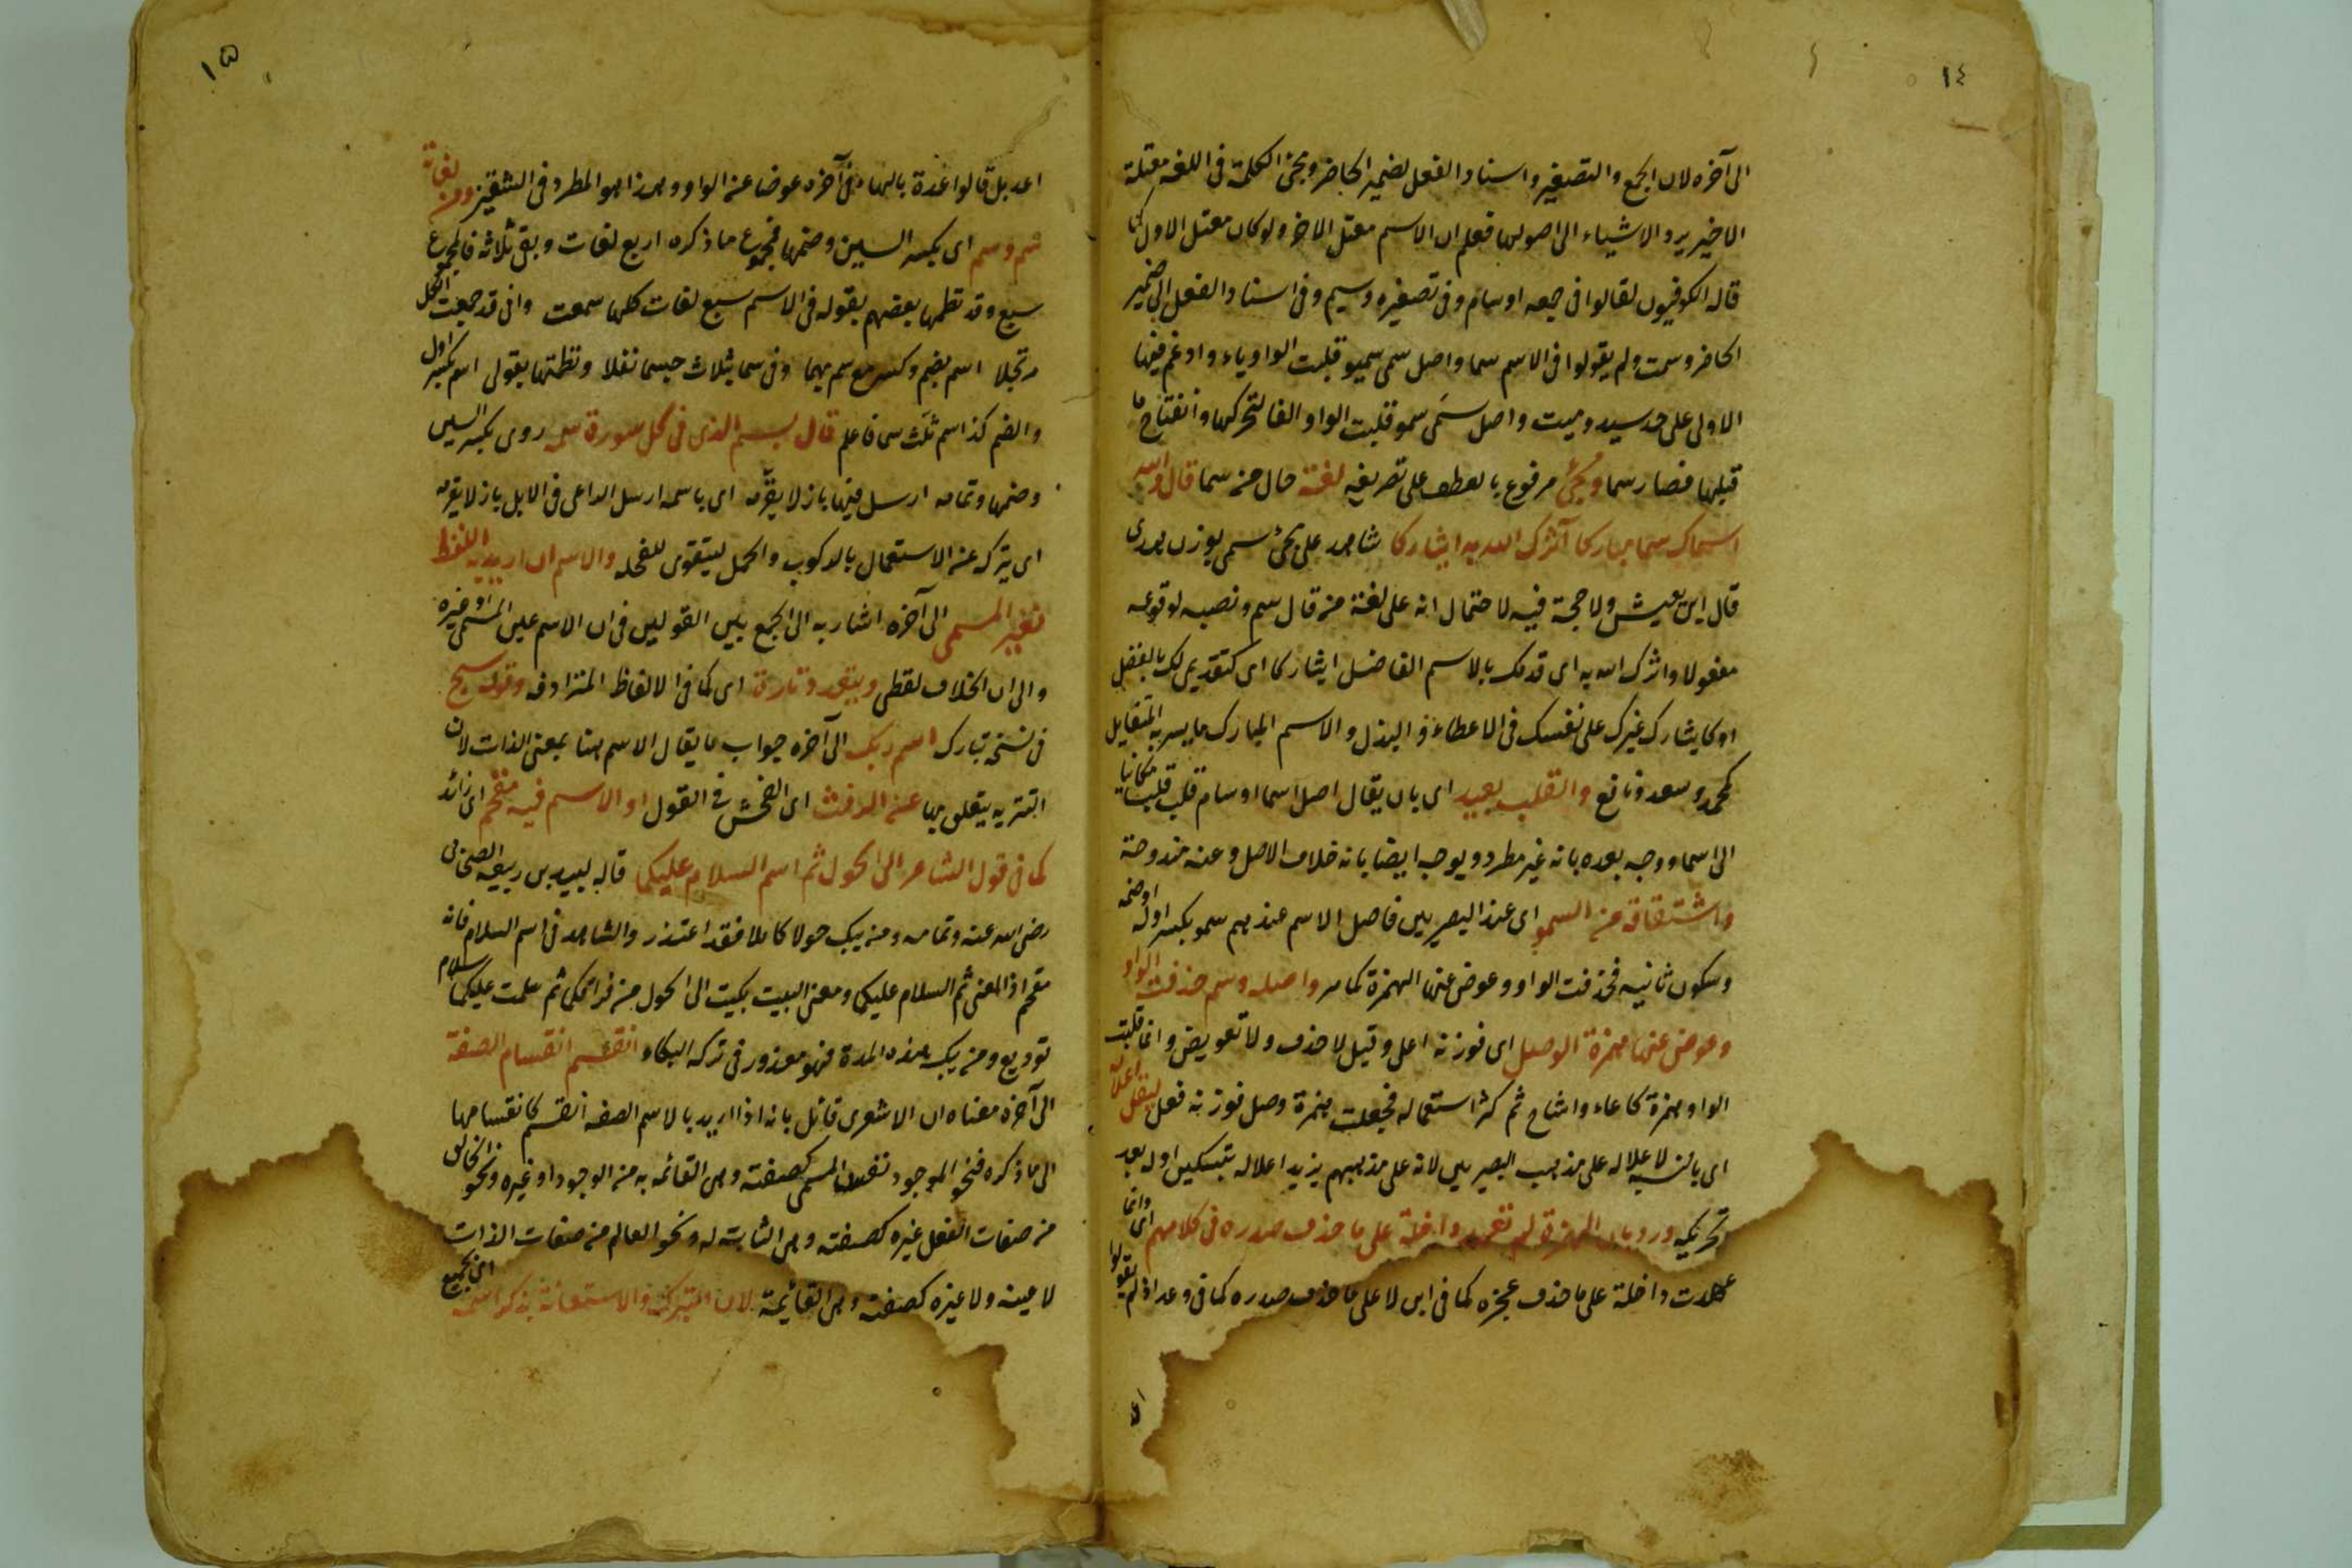 ١٤
الى آخره لان الجمع والتصغير واسناد الفعل لضمير الحاضر ومجئ الكلمة فى اللغة معتلة
الاخير يرد الاشياء الى اصولها فعلم ان الاسم معتل الاخر ولو كان معتل الاول كما
قاله الكوفيون لقالوا فى جمعه اوسام وفى تصغيره وسيم وفى اسناد الفعل الى ضمير
الحاضر وسمت ولم يقولوا فى الاسم سما واصل سمى سميو قلبت الواو ياء وادغم فيها
الاولى على حد سيد وميت واصل سمى سمو قلبت الواو الفا لتحركها وانفتاح ما
قبلها فصار سما ومجئ مرفوع بالعطف على تصريفه لغة حال من سما قال والله
اسماك سما مباركا آثرك الله به ايثاركا شاهد على مجئ سمى بوزن هدى
قال ابن يعيش ولا حجة فيه لاحتمال انه على لغة من قال سم ونصبه لوقوعه
مفعولا واثرك الله به اى قدمك بالاسم الفاضل ايثاركا اى كتقديمى لك بالفضل
او كايثارك غيرك على نفسك فى الاعطاء و البذل والاسم المبارك ما يسر به المتفايل
كمحمد وسعد ونافع والقلب بعيد اى بان يقال اصل اسما اوسام قلب قلبا مكانيا
الى اسما ووجه بعده بانه غير مطرد ويوجه ايضا بانه خلاف الاصل وعنه مندوحة
واشتقاقه من السمو اى عند البصريين فاصل الاسم عندهم سمو بكسر اوله او ضمه
وسكون ثانيه فحذفت الواو وعوض عنها الهمزة كما مر واصله وسم حذفت الواو
وعوض عنها همزة الوصل اى فوزنه اعل وقيل لا حذف ولا تعويض وانما قلبت
الواو همزة كاعاء واشاح ثم كثر استعماله فجعلت همزة وصل فوزنه فعل ليقل اعلاله
اى بالنسبة لاعلاله على مذهب البصريين لانه على مذهبهم يزيد اعلاله بتسكين اوله بعد
تحريكه ورد بان الهمزة لم تعهد داخلة على ما حذف صدره فى كلامهم اى وانما
عهدت داخلة على ما حذف عجزه كما فى ابن لا على ما حذف صدره كما فى وعد اذ لم يقولوا
١٥
اعد بل قالوا عدة بالهاء فى آخره عوضا عن الواو وهذا هو المطرد فى الشقين ومن لغاته
سم وسم اى بكسر السين وضمها فمجموع ما ذكره اربع لغات وبقى ثلاثة فالمجموع
سبع وقد نظمها بعضهم بقوله فى الاسم سبع لغات كلها سمعت وانى قد جمعت الكل
مرتجلا اسم بضم وكسر مع سم بهما وفى سما ثلاث حيسما نقلا ونظمتها بقولى اسم بكسر اول
والضم كذا سم ثلث سى فاعلم قال بسم الذى فى كل سورة سمه روى بكسر السين
وضمها وتمامه ارسل فيها بازلا يقرّمه اى باسمه ارسل الداعى فى الابل بازلا يقرمه
اى يتركه عن الاستعمال بالركوب والحمل ليتقوى للفحله والاسم ان اريد به اللفظ
فغير المسمى الى آخره اشار به الى الجمع بين القولين فى ان الاسم عين المسمى او غيره
والى ان الخلاف لفظى ويتعدد تارة اى كما فى الالفاظ المترادفه وقوله سبح
فى نسخة تبارك اسم ربك الى آخره جواب ما يقال الاسم هنا بمعنى الذات لان
التنزيه يتعلق بها عن الرفث اى الفحش فى القول او الاسم فيه مقحم اى زائد
كما فى قول الشاعر الى الحول ثم اسم السلام عليكما قاله لبيد بن ربيعه الصحابى
رضى الله عنه وتمامه ومن يبك حولا كاملا فقد اعتذر والشاهد فى اسم السلام فانه
مقحم اذ المعنى ثم السلام عليكما ومعنى البيت بكيت الى الحول من فراقكما ثم سلمت عليكما سلام
توديع ومن يبك هذه المدة فهو معذور فى تركه البكاء انقسم انقسام الصفة
الى آخره معناه ان الاشعرى قائل بانه اذا اريد بالاسم الصفه انقسم كانقسامها
الى ما ذكره فنحو الموجود نفس المسمى كصفته وهى القائمه به من الوجود او غيره ونحو الخالق
من صفات الفعل غيره كصفته وهى الثابتة له ونحو العالم من صفات الذات
لا عينه ولا غيره كصفته وهى القائمة لان التبرك والاستعانة بذكر اسمه اى بجميع